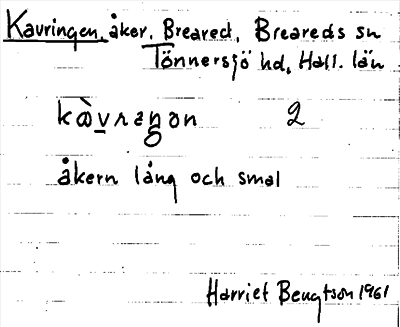 Kavringen, åker, Breared, Breareds sn
Tönnersjö hd, Hall. län
kàvraŋən 2
åkern lång och smal
Harriet Bengtson 1961